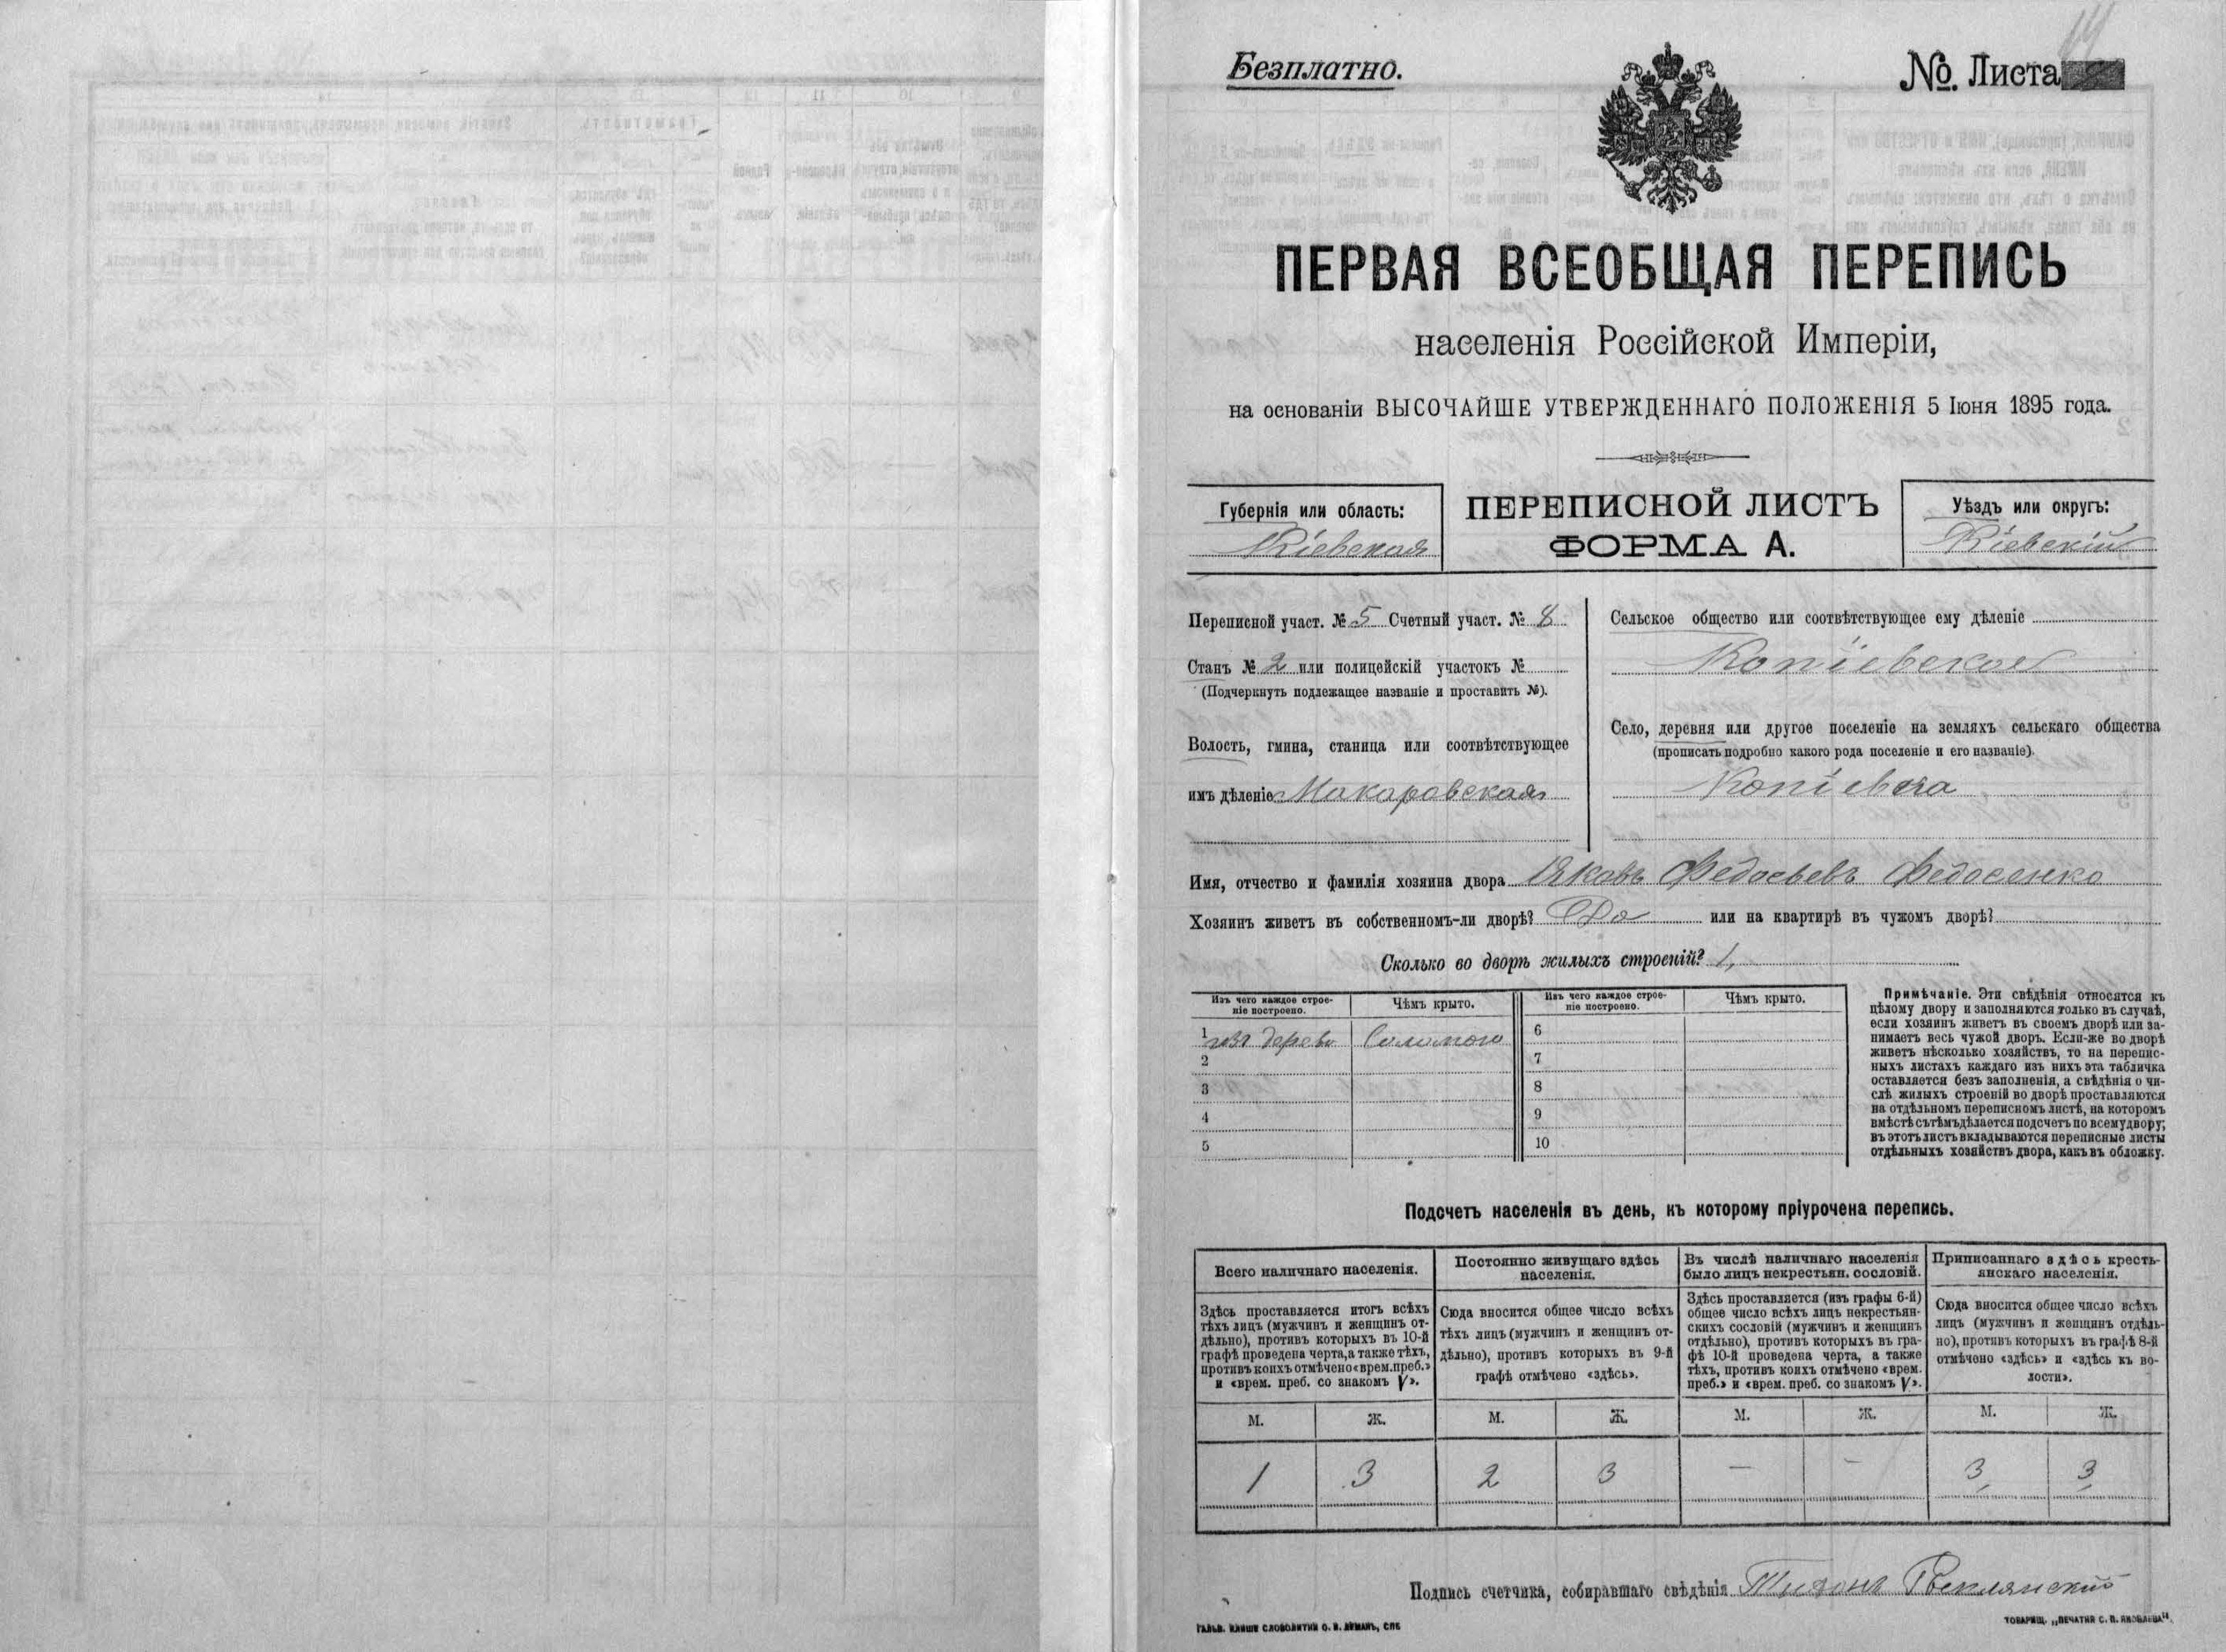 Безплатно.
№. Листа
ПЕРВАЯ ВСЕОБЩАЯ ПЕРЕПИСЬ
населенія Россійской Имперіи,
на основаніи ВЫСОЧАЙШЕ УТВЕРЖДЕННАГО ПОЛОЖЕНІЯ 5 Іюня 1895 года.
Губернія или область:
Кіевская
ПЕРЕПИСНОЙ ЛИСТЪ
ФОРМА А.
Уѣздъ или округъ:
Кіевскій
Переписной участ. № 5 Счетный участ. № 8
Станъ № 2 или полицейскій участокъ №
(Подчеркнуть подлежащее названіе и проставить №).
Волость, гмина, станица или соотвѣтствующее
имъ дѣленіе Макаровская
Сельское общество или соотвѣтствующее ему дѣленіе
Копіевское
Село, деревня или другое поселеніе на земляхъ сельскаго общества
(прописать подробно какого рода поселеніе и его названіе).
Копіевка
Имя, отчество и фамилія хозяина двора Яковъ Федосьевъ Федосенко
Хозяинъ живетъ въ собственномъ-ли дворѣ? Да или на квартирѣ въ чужомъ дворѣ?
Сколько во дворѣ жилыхъ строеній? 1,
Изъ чего каждое строе-
ніе построено.
Чѣмъ крыто.
Изъ чего каждое строе-
ніе построено.
Чѣмъ крыто.
1 изъ дерева Соломою
2
3
4
5
6
7
8
9
10
Примѣчаніе. Эти свѣдѣнія относятся къ
цѣлому двору и заполняются только въ случаѣ,
если хозяинъ живетъ въ своемъ дворѣ или за-
нимаетъ весь чужой дворъ. Если-же во дворѣ
живетъ нѣсколько хозяйствъ, то на перепис-
ныхъ листахъ каждаго изъ нихъ эта табличка
оставляется безъ заполненія, а свѣдѣнія о чи-
слѣ жилыхъ строеній во дворѣ проставляются
на отдѣльномъ переписномъ листѣ, на которомъ
вмѣстѣ съ тѣмъ дѣлается подсчетъ по всему двору;
въ этотъ листъ вкладываются переписные листы
отдѣльныхъ хозяйствъ двора, какъ въ обложку.
Подсчетъ населенія въ день, къ которому пріурочена перепись.
Всего наличнаго населенія.
Здѣсь проставляется итогъ всѣхъ
тѣхъ лицъ (мужчинъ и женщинъ от-
дѣльно), противъ которыхъ въ 10-й
графѣ проведена черта, а также тѣхъ,
противъ коихъ отмѣчено «врем. преб.»
и «врем. преб. со знакомъ V».
Постоянно живущаго здѣсь
населенія.
Сюда вносится общее число всѣхъ
тѣхъ лицъ (мужчинъ и женщинъ от-
дѣльно), противъ которыхъ въ 9-й
графѣ отмѣчено «здѣсь».
Въ числѣ наличнаго населенія
было лицъ некрестьян. сословій.
Здѣсь проставляется (изъ графы 6-й)
общее число всѣхъ лицъ некрестьян-
скихъ сословій (мужчинъ и женщинъ
отдѣльно), противъ которыхъ въ гра-
фѣ 10-й проведена черта, а также
тѣхъ, противъ коихъ отмѣчено «врем.
преб.» и «врем. преб. со знакомъ V».
Приписаннаго здѣсь кресть-
янскаго населенія.
Сюда вносится общее число всѣхъ
лицъ (мужчинъ и женщинъ отдѣль-
но), противъ которыхъ въ графѣ 8-й
отмѣчено «здѣсь» и «здѣсь къ во-
лости».
М. Ж. М. Ж. М. Ж. М. Ж.
1 3 2 3 — — 3 3
Подпись счетчика, собиравшаго свѣдѣнія Тихонъ
ГАЛЬВ. КЛИШЕ СЛОВОЛИТНИ О. И. ЛЕМАНЪ, СПБ
ТОВАРИЩ. „ПЕЧАТНЯ С. П. ЯКОВЛЕВА“.